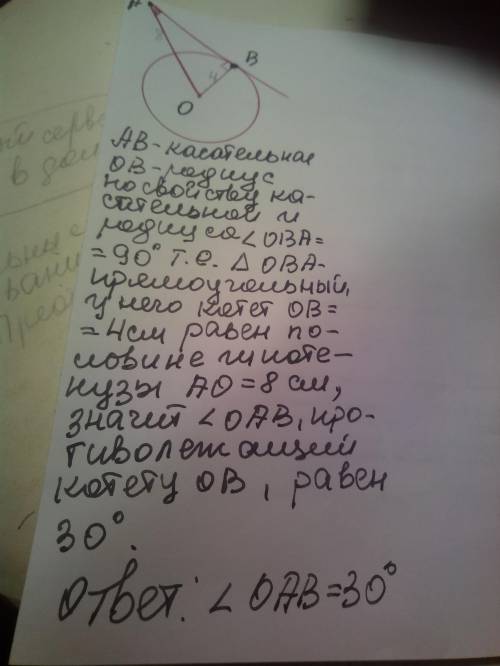 A
8
B
4
O
AB-касательная
OB-радиус
по свойству ка-
сательной и
радиуса ∠OBA=
=90° т.е. △OBA-
прямоугольный,
у него катет OB=
=4см равен по-
ловине гипоте-
нузы AO=8см,
значит ∠OAB, про-
тиволежащий
катету OB, равен
30°.
Ответ: ∠OAB=30°